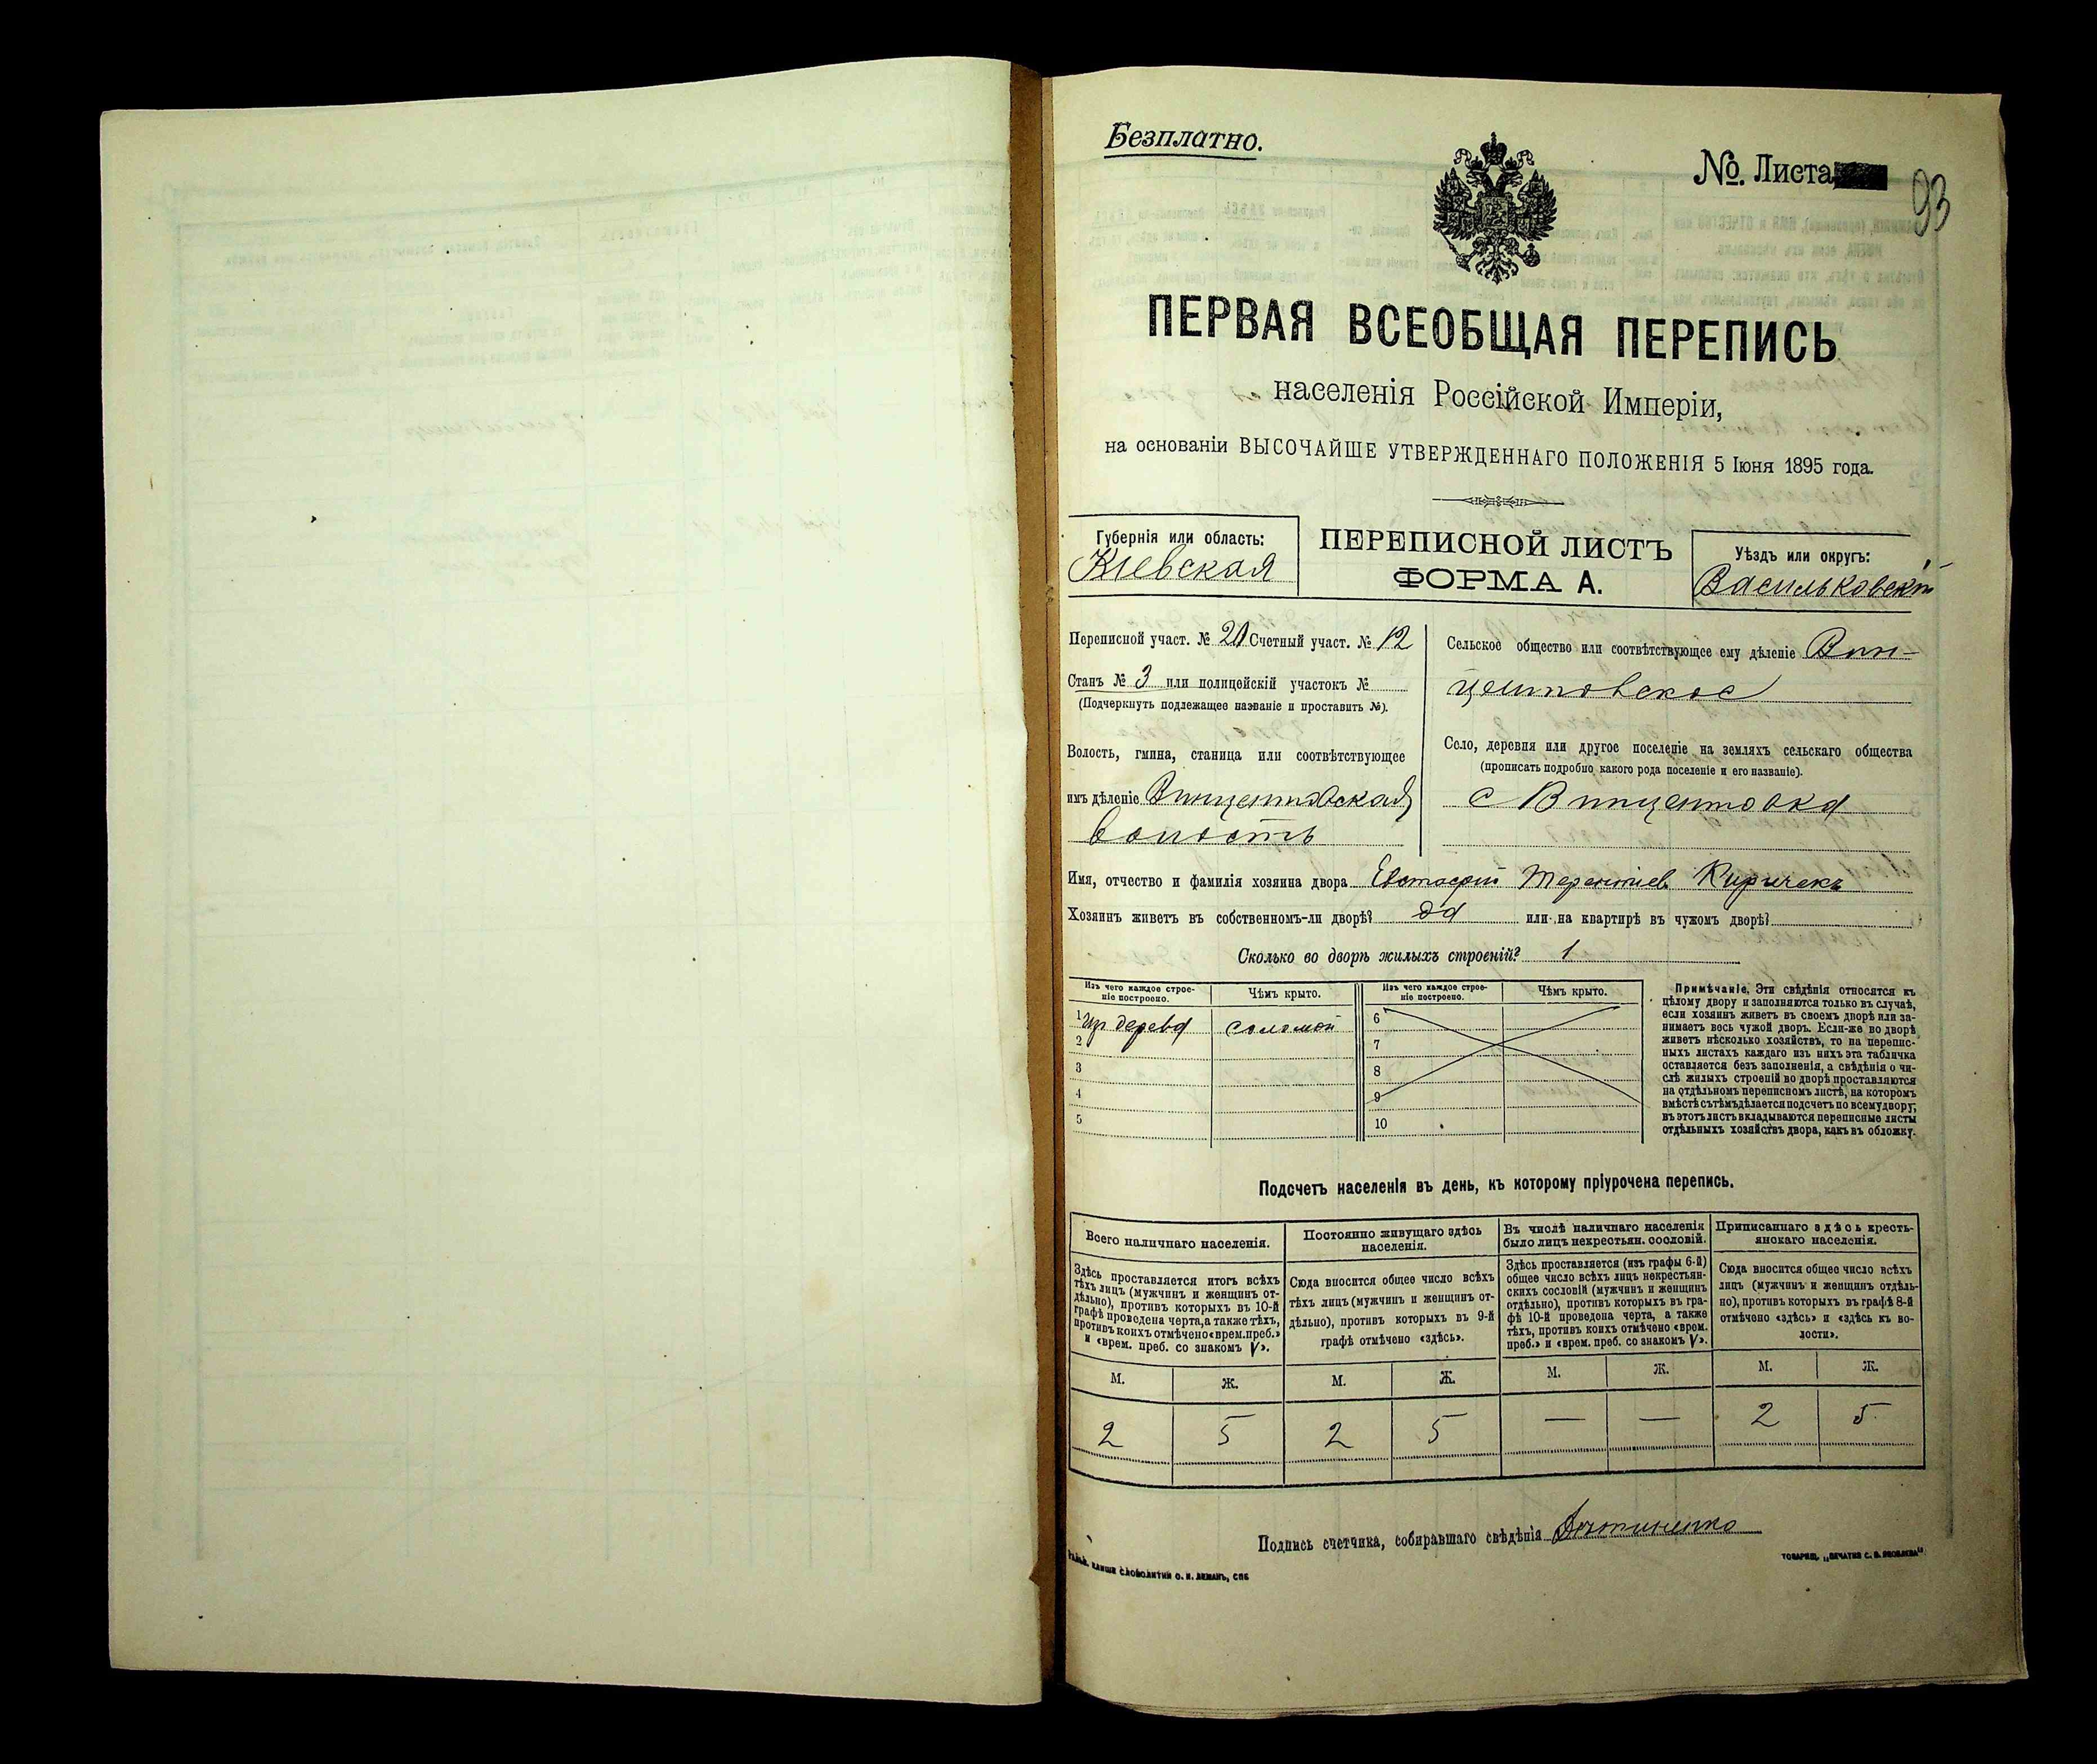 Безплатно.
No. Листа
93
ПЕРВАЯ ВСЕОБЩАЯ ПЕРЕПИСЬ
населенія Россійской Имперіи,
на основаніи ВЫСОЧАЙШЕ УТВЕРЖДЕННАГО ПОЛОЖЕНІЯ 5 Іюня 1895 года.
Губернія или область:
Кіевская
ПЕРЕПИСНОЙ ЛИСТЪ
ФОРМА А.
Уѣздъ или округъ:
Васильковскій
Переписной участ. № 21 Счетный участ. № 12
Станъ № 3 или полицейскій участокъ №
(Подчеркнуть подлежащее названіе и проставить №).
Волость, гмина, станица или соотвѣтствующее
имъ дѣленіе Винцентовская
волость
Сельское общество или соотвѣтствующее ему дѣленіе Вин-
центовское
Село, деревня или другое поселеніе на земляхъ сельскаго общества
(прописать подробно какого рода поселеніе и его названіе).
с Винцентовка
Имя, отчество и фамилія хозяина двора Евстафій Терентіев Киричекъ
Хозяинъ живетъ въ собственномъ-ли дворѣ? да или на квартирѣ въ чужомъ дворѣ?
Сколько во дворѣ жилыхъ строеній? 1
Изъ чего каждое строе-
ніе построено.
Чѣмъ крыто.
Изъ чего каждое строе-
ніе построено.
Чѣмъ крыто.
1 из дерева соломой
2
3
4
5
6
7
8
9
10
Примѣчаніе. Эти свѣдѣнія относятся къ
цѣлому двору и заполняются только въ случаѣ,
если хозяинъ живетъ въ своемъ дворѣ или за-
нимаетъ весь чужой дворъ. Если-же во дворѣ
живетъ нѣсколько хозяйствъ, то на перепис-
ныхъ листахъ каждаго изъ нихъ эта табличка
оставляется безъ заполненія, а свѣдѣнія о чи-
слѣ жилыхъ строеній во дворѣ проставляются
на отдѣльномъ переписномъ листѣ, на которомъ
вмѣстѣ съ тѣмъ дѣлается подсчетъ по всему двору;
въ этотъ листъ вкладываются переписные листы
отдѣльныхъ хозяйствъ двора, какъ въ обложку.
Подсчетъ населенія въ день, къ которому пріурочена перепись.
Всего наличнаго населенія.
Здѣсь проставляется итогъ всѣхъ
тѣхъ лицъ (мужчинъ и женщинъ от-
дѣльно), противъ которыхъ въ 10-й
графѣ проведена черта, а также тѣхъ,
противъ коихъ отмѣчено «врем. преб.»
и «врем. преб. со знакомъ V».
Постоянно живущаго здѣсь
населенія.
Сюда вносится общее число всѣхъ
тѣхъ лицъ (мужчинъ и женщинъ от-
дѣльно), противъ которыхъ въ 9-й
графѣ отмѣчено «здѣсь».
Въ числѣ наличнаго населенія
было лицъ некрестьян. сословій.
Здѣсь проставляется (изъ графы 6-й)
общее число всѣхъ лицъ некрестьян-
скихъ сословій (мужчинъ и женщинъ
отдѣльно), противъ которыхъ въ гра-
фѣ 10-й проведена черта, а также
тѣхъ, противъ коихъ отмѣчено «врем.
преб.» и «врем. преб. со знакомъ V».
Приписаннаго здѣсь кресть-
янскаго населенія.
Сюда вносится общее число всѣхъ
лицъ (мужчинъ и женщинъ отдѣль-
но), противъ которыхъ въ графѣ 8-й
отмѣчено «здѣсь» и «здѣсь къ во-
лости».
М. Ж. М. Ж. М. Ж. М. Ж.
2 5 2 5 — — 2 5
Подпись счетчика, собиравшаго свѣдѣнія
СЛОВОЛИТНИ О. И. ЛЕМАНЪ, СПБ
ТОВАРИЩ. „ПЕЧАТНЯ С. П. ЯКОВЛЕВА"